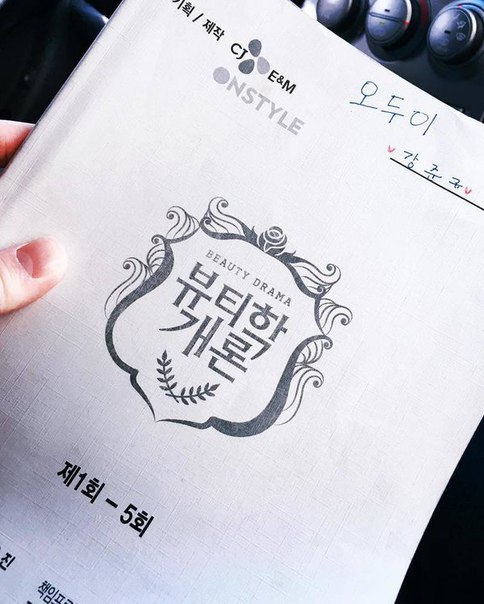 기획 / 제작 CJ E&M
ONSTYLE
오두이
BEAUTY DRAMA
뷰티학
개론
제1회 – 5회
진